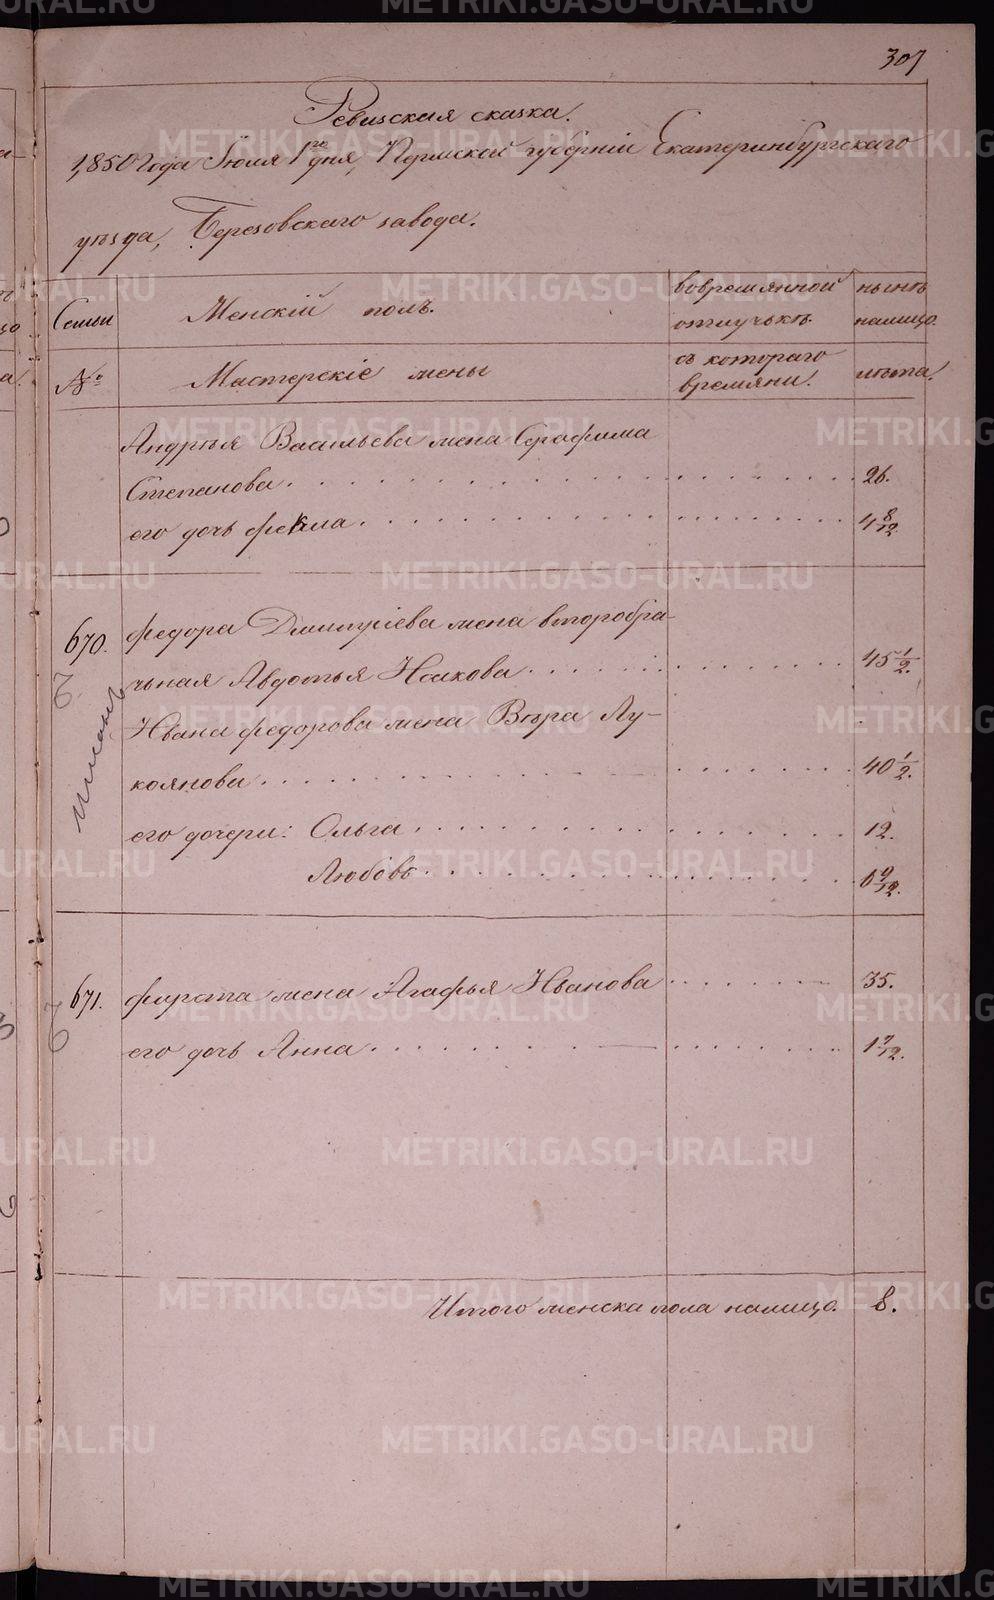 307
Ревизская сказка.
1850 Года Іюля 1го дня, Пермской губерніи Екатеринбургскаго
уѣзда, Березовскаго завода.
Семьи
Женскій полъ.
вовремянной
отлучькѣ.
нынѣ
налицо.
№
Мастерскіе жены
съ котораго
времяни.
лѣта.
Андрея Васильева жена Серафима
Степанова. 26.
его дочь Фекла. 4 8/12
670. Федора Дмитріева жена второбра-
чьная Авдотья Исакова 45 1/2.
Ивана Федорова жена Вѣра Лу-
коянова 40 1/2.
его дочери: Ольга 12.
Любовь 6 9/12.
671. Фирста жена Агафья Иванова 35.
его дочь Анна 1 7/12.
Итого женска пола налицо. 8.
METRIKI.GASO-URAL.RU